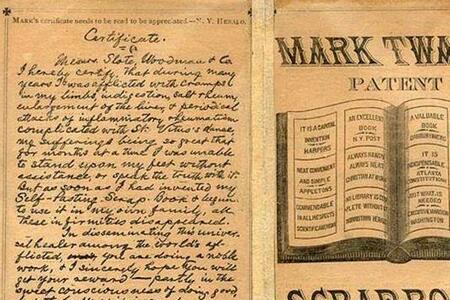 MARK'S certificate needs to be read to be appreciated.—N. Y. HERALD.
Certificate.
Messrs. Slote, Woodman & Co
I hereby certify, that during many
years I was afflicted with cramps
in my limbs, indigestion, salt rheum,
enlargement of the liver, & periodical
attacks of inflammatory rheumatism
complicated with St. Vitus's dance,
my sufferings being so great that
for months at a time I was unable
to stand upon my feet without
assistance, or speak the truth with it.
But as soon as I had invented my
Self-Pasting Scrap-Book & begun
to use it in my own family, all
these infirmities disappeared.
In disseminating this univer-
sal healer among the world's af-
flicted, you are doing a noble
work, & I sincerely hope you will
get your reward — partly in the
sweet consciousness of doing good
MARK TWA
PATENT
IT IS A DANIAL
INVENTION
HARPERS
NEAT CONVENIENT
AND SIMPLE
APPLETONS
COMMENDABLE
IN ALL RESPECTS
SCIENTIFIC AMERICAN
AN EXCELLENT
BOOK
N.Y. POST
ALWAYS HANDY
ALWAYS NEAT
NO LIBRARY IS COM
PLETE WITHOUT
A VALUABLE
BOOK
IT IS
INDISPENSABLE
ATLANTA
CONSTITUTION
JUST WHAT IS
NEEDED
WASHINGTON
SCRAP BO